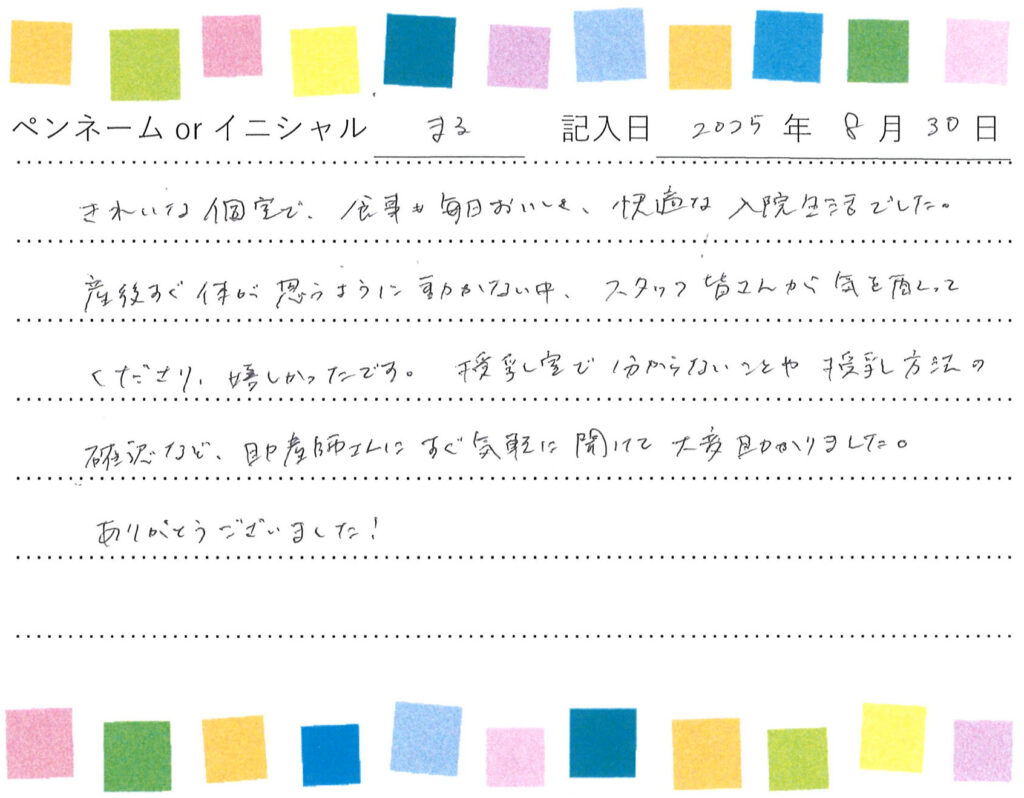 ペンネーム or イニシャル まる 記入日 2025 年 8 月 30 日
きれいな個室で、食事も毎日おいしく、快適な入院生活でした。
産後すぐ体が思うように動かない中、スタッフ皆さんから気を配って
くださり、嬉しかったです。授乳室で分からないことや授乳方法の
確認など、助産師さんにすぐ気軽に聞けて大変助かりました。
ありがとうございました!